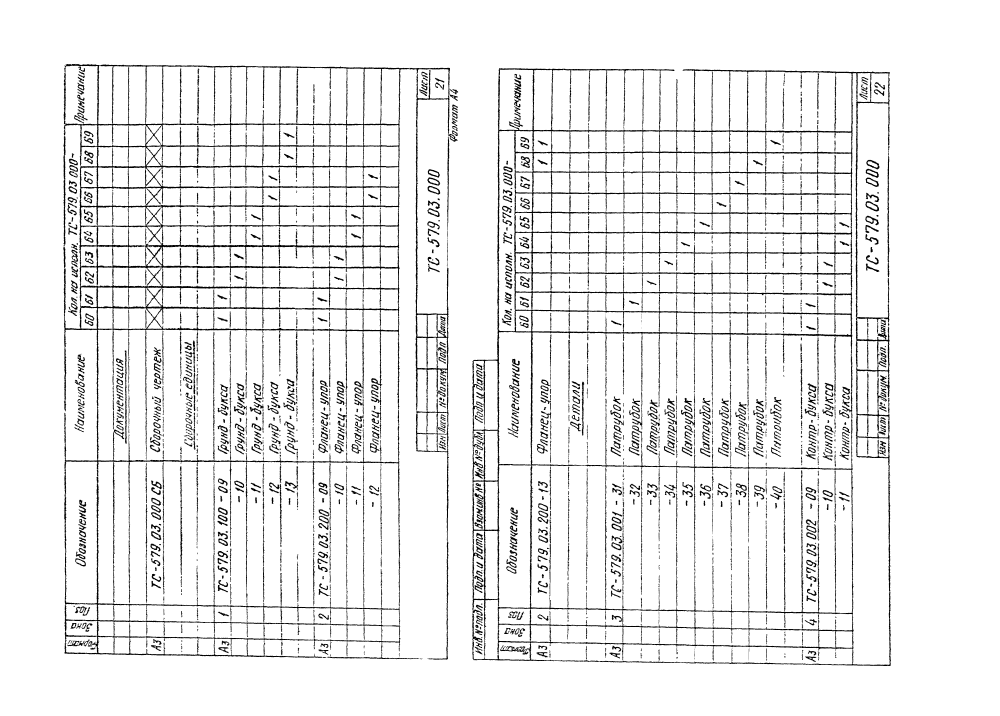 Формат Зона Поз. Обозначение Наименование Кол. на исполн. ТС-579.03.000- Примечание
60 61 62 63 64 65 66 67 68 69
Документация
А3 ТС-579.03.000 СБ Сборочный чертеж
Сборочные единицы
А3 1 ТС-579.03.100 -09 Грунд-букса 1 1
-10 Грунд-букса 1 1
-11 Грунд-букса 1 1
-12 Грунд-букса 1 1
-13 Грунд-букса 1 1
А3 2 ТС-579.03.200 -09 Фланец-упор 1 1
-10 Фланец-упор 1 1
-11 Фланец-упор 1 1
-12 Фланец-упор 1 1
Изм Лист № докум. Подп. Дата
ТС-579.03.000
Лист
21
Формат А4
Инв.№ подл. Подп. и дата Взам.инв.№ Инв.№ дубл. Подп. и дата
Формат Зона Поз Обозначение Наименование Кол. на исполн. ТС-579.03.000- Примечание
60 61 62 63 64 65 66 67 68 69
А3 2 ТС-579.03.200-13 Фланец-упор 1 1
Детали
А3 3 ТС-579.03.001 -31 Патрубок 1
-32 Патрубок 1
-33 Патрубок 1
-34 Патрубок 1
-35 Патрубок 1
-36 Патрубок 1
-37 Патрубок 1
-38 Патрубок 1
-39 Патрубок 1
-40 Патрубок 1
А3 4 ТС-579.03.002 -09 Контр-букса 1 1
-10 Контр-букса 1 1
-11 Контр-букса 1 1
Изм Лист № докум. Подп. Дата
ТС-579.03.000
Лист
22